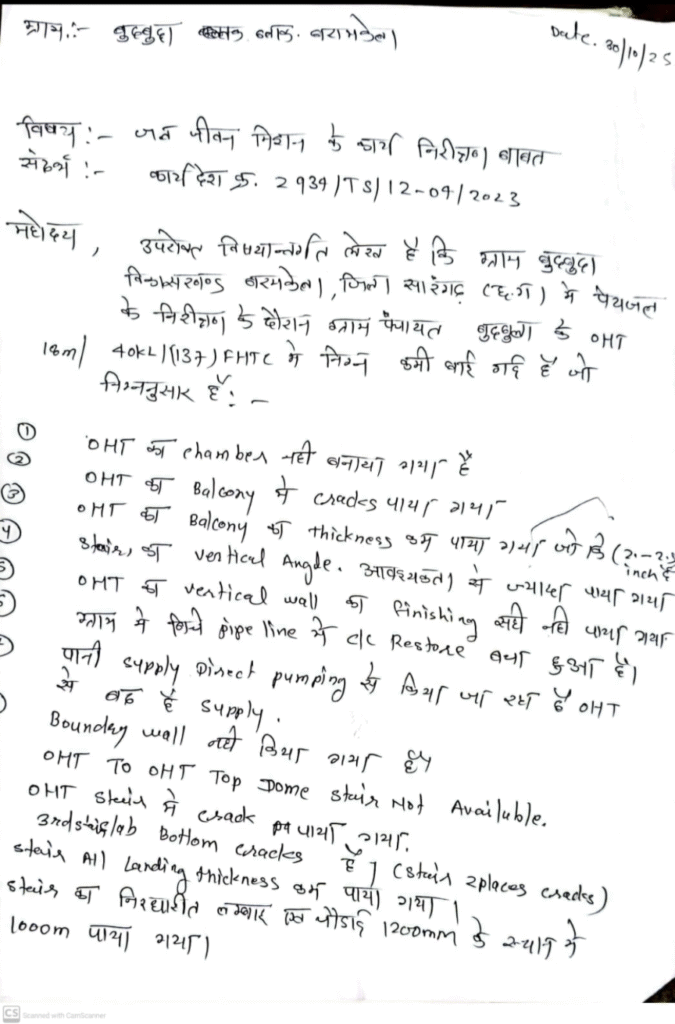 ग्राम:- बुदबुदा ब्लाक. बरामकेला
Date. 30/10/25
विषय :- जल जीवन मिशन के कार्य निरीक्षण बाबत
संदर्भ :- कार्य देश क्र. 2939/TS/12-04/2023
महोदय,
उपरोक्त विषयान्तर्गत लेख है कि ग्राम बुदबुदा
विकासखण्ड बरमकेला, जिला सारंगढ़ (छ.ग) में पेयजल
के निरीक्षण के दौरान ग्राम पंचायत के OHT
18m/ 40KL/(137) FHTC में निम्न कमी पाई गई है जो
निम्ननुसार हैं: -
① OHT का chamber नही बनाया गया है
② OHT का Balcony में cracks पाया गया
③ OHT का Balcony का thickness कम पाया गया जो कि (2.-2.5 inch है
④ stair, का vertical Angle. आवश्यकता से ज्यादा पाया गया
OHT का vertical wall का finishing सही नही पाया गया
ग्राम में pipe line में c/c Restore बचा हुआ है।
पानी supply Direct pumping से किया जा रहा है OHT
से बंद है supply.
Boundry wall नही किया गया है
OHT TO OHT Top Dome stair Not Available.
OHT stair में crack पाया गया.
3rd slab Bottom cracks है (stair 2places cracks)
stair All Landing thickness कम पाया गया।
stair का निरधारीत लम्बाई चौड़ाई 1200mm के स्थान में
1000m पाया गया।
CS Scanned with CamScanner